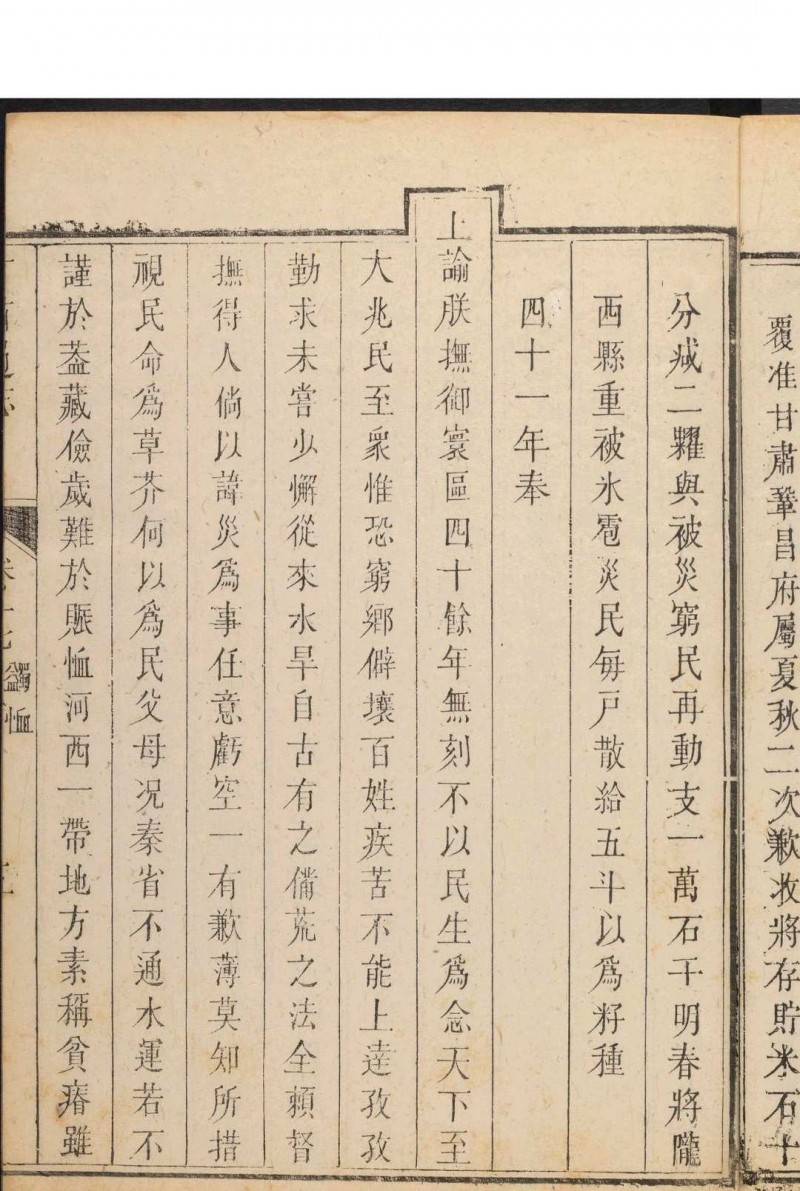 覆准甘肅鞏昌府屬夏秋二次歉收將存貯米石十
分減二糶與被災窮民再動支一萬石于明春將隴
西縣重被氷雹災民每戸散給五斗以爲籽種
四十一年奉
上諭朕撫御寰區四十餘年無刻不以民生爲念天下至
大兆民至衆惟恐窮鄉僻壤百姓疾苦不能上達孜孜
勤求未嘗少懈從來水旱自古有之備荒之法全賴督
撫得人倘以諱災爲事任意虧空一有歉薄莫知所措
視民命爲草芥何以爲民父母况秦省不通水運若不
謹於葢藏儉歲難於賑恤河西一帶地方素稱貧瘠雖
蠲恤